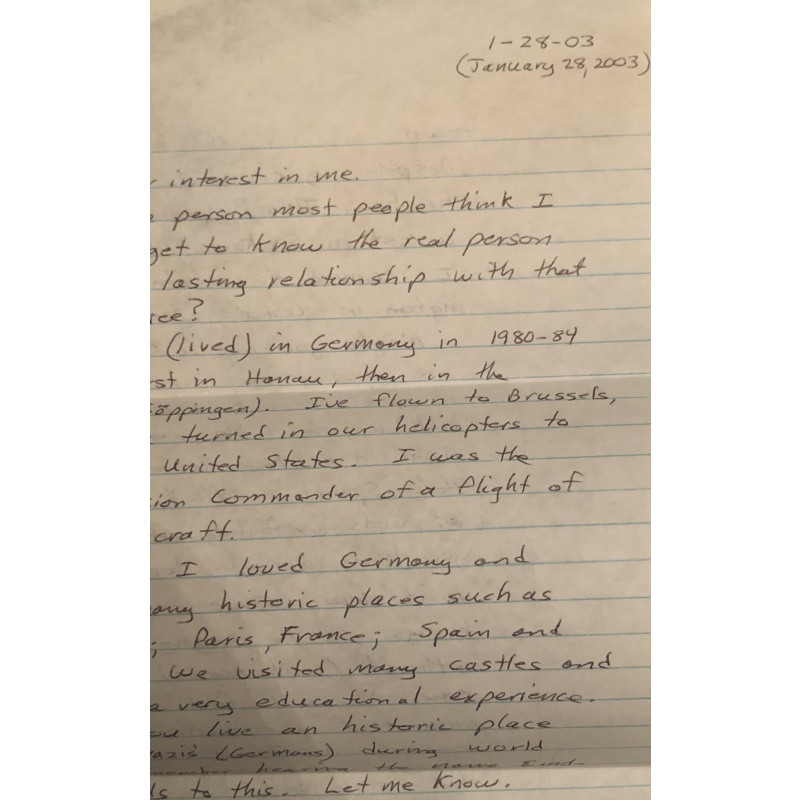 1-28-03
(January 28, 2003)
interest in me.
person most people think I
get to know the real person
lasting relationship with that
ree?
(lived) in Germany in 1980-84
st in Hanau, then in the
öppingen). I've flown to Brussels,
turned in our helicopters to
United States. I was the
ion Commander of a flight of
craft.
I loved Germany and
any historic places such as
; Paris, France; Spain and
We visited many castles and
a very educational experience.
ou live an historic place
azis (Germans) during world
hearing the name
ls to this. Let me know.